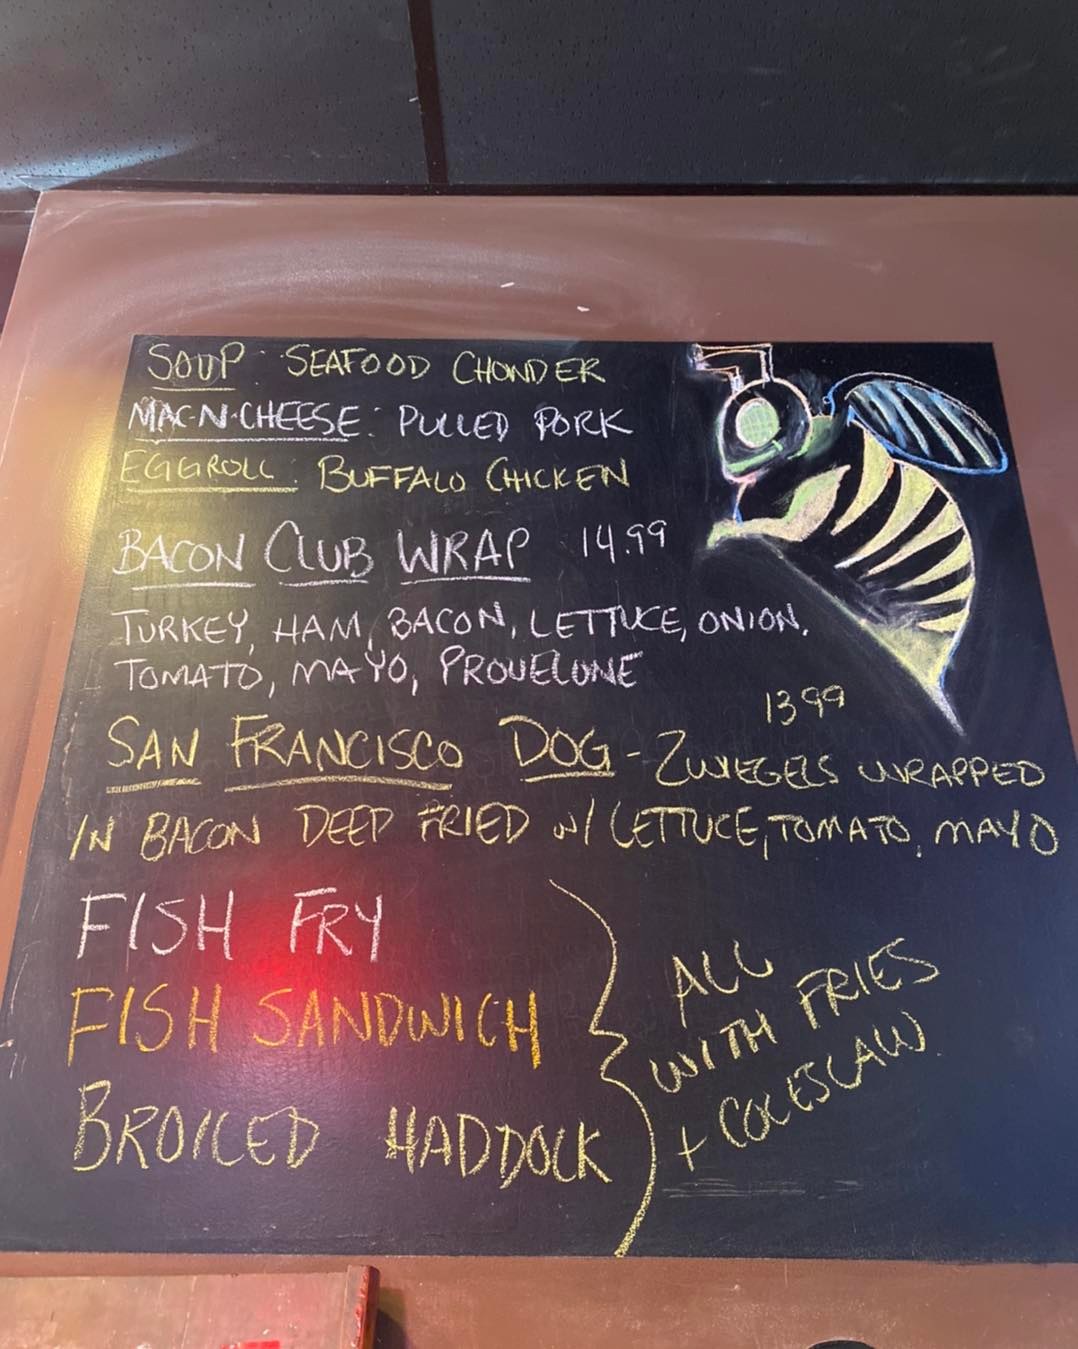 SOUP: SEAFOOD CHOWDER
MAC-N-CHEESE: PULLED PORK
EGGROLL: BUFFALO CHICKEN
BACON CLUB WRAP 14.99
TURKEY, HAM, BACON, LETTUCE, ONION,
TOMATO, MAYO, PROVELONE
13.99
SAN FRANCISCO DOG - ZWIEGELS WRAPPED
IN BACON DEEP FRIED W/ LETTUCE, TOMATO, MAYO
FISH FRY
FISH SANDWICH
BROILED HADDOCK
ALL
WITH FRIES
+ COLESLAW